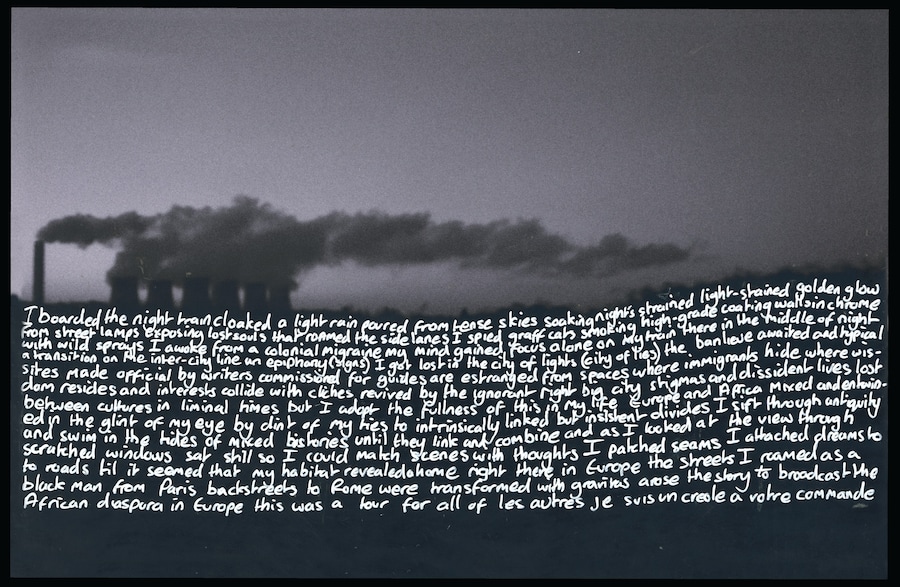 I boarded the night train cloaked a light rain poured from tense skies soaking nights strained light-stained golden glow
from street lamps exposing lost souls that roamed the side lanes I spied graff cats smoking high-grade coating walls in chrome
with wild sprays I awoke from a colonial migraine my mind gained focus alone on my train there in the middle of night
a transition on the inter-city line an epiphany (signs) I got lost in the city of lights (city of lies) the banlieue awaited and typical
sites made official by writers commissioned for guides are estranged from spaces where immigrants hide where wis-
dom resides and interests collide with cliches revived by the ignorant right big city stigmas and dissident lives lost
between cultures in liminal times but I adopt the fullness of this in my life Europe and Africa mixed and entwin-
ed in the glint of my eye by dint of my ties to intrinsically linked but insistent divides I sift through antiquity
and swim in the tides of mixed histories until they link and combine and as I looked at the view through
scratched windows sat still so I could match scenes with thoughts I patched seams I attached dreams to
to roads til it seemed that my habitat revealed a home right there in Europe the streets I roamed as a
black man from Paris backstreets to Rome were transformed with gravitas arose the story to broadcast the
African diaspora in Europe this was a tour for all of les autres je suis un creole à votre commande